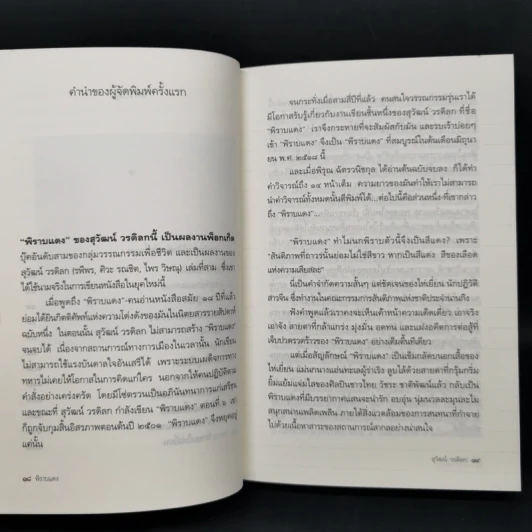 คำนำของผู้จัดพิมพ์ครั้งแรก
"พิราบแดง" ของสุวัฒน์ วรดิลกนี้ เป็นผลงานพ็อกเก็ต
บุ๊คอันดับสามของกลุ่มวรรณกรรมเพื่อชีวิต และเป็นผลงานของ
สุวัฒน์ วรดิลก (รพีพร, ศิวะ รณชิต, ไพร วิษณุ) เล่มที่สาม ซึ่งเขา
ได้ใช้นามจริงในการเขียนหนังสือในยุคใหม่นี้
เมื่อพูดถึง "พิราบแดง" คนอ่านหนังสือสมัย ๑๘ ปีที่แล้ว
ย่อมได้ยินกิตติศัพท์แห่งความโด่งดังของมันในนิตยสารรายสัปดาห์
ฉบับหนึ่ง ในตอนนั้น สุวัฒน์ วรดิลก ไม่สามารถสร้าง "พิราบแดง"
จนจบได้ เนื่องจากสถานการณ์ทางการเมืองในเวลานั้น นักเขียน
ไม่สามารถใช้แรงบันดาลใจอันเสรีได้ เพราะระบบเผด็จการทหาร
ทหารไม่เคยให้โอกาสในการคิดแก่ใคร นอกจากให้คนปฏิบัติตาม
คำสั่งอย่างเคร่งครัด โดยมีโซ่ตรวนเป็นอภินันทนาการแก่เสรีชน
และขณะที่ สุวัฒน์ วรดิลก กำลังเขียน "พิราบแดง" ตอนที่ ๖ เขา
ก็ถูกจับกุมสิ้นอิสรภาพตอนต้นปี ๒๕๐๑ "พิราบแดง" จึงหยุดอยู่
แค่นั้น
๑๘ พิราบแดง
จนกระทั่งเมื่อสามสี่ปีที่แล้ว คนสนใจวรรณกรรมรุ่นเราได้
มีโอกาสรับรู้เกี่ยวกับงานเขียนชิ้นหนึ่งของสุวัฒน์ วรดิลก ที่ชื่อ
"พิราบแดง" เราจึงกระหายที่จะสัมผัสกับมัน และรบเร้าบ่อยๆ
เข้า "พิราบแดง" จึงเป็น "พิราบแดง" ที่สมบูรณ์ในต้นเดือนมิถุนา
ยน พ.ศ. ๒๕๑๘ นี้
และเมื่อพิรุณ ฉัตรวนิชกุล ได้อ่านต้นฉบับจบลง ก็ได้ทำ
คำวิจารณ์ถึง ๑๔ หน้าเต็ม ความยาวของมันทำให้เราไม่สามารถ
นำคำวิจารณ์ทั้งหมดนั้นตีพิมพ์ได้...ต่อไปนี้คือส่วนหนึ่ง-ที่เขากล่าว
ถึง "พิราบแดง"...
"พิราบแดง" ทำไมนกพิราบตัวนี้จึงเป็นสีแดง? เพราะ
"สันติภาพที่ถาวรนั้นย่อมไม่ใช่สีขาว หากเป็นสีแดง สีของเลือด
แห่งความเสียสละ"
นี่เป็นคำจำกัดความสั้นๆ แต่ชัดเจนของไห่เยี่ยน นักปฏิวัติ
สาวจีน ซึ่งทำงานในคณะกรรมการสันติภาพแห่งชาติประจำนานกิง
ฟังคำพูดแล้วเราคงจะเห็นเค้าหน้าความเด็ดเดี่ยว เอาจริง
เอาจัง สายตาที่กล้าแกร่ง มุ่งมั่น อดทน และแม่งอคิดการต่อสู้ที่
เจ็บปวดรวดร้าวของ "พิราบแดง" อย่างเต็มตื้นทีเดียว
แต่เมื่อสัญลักษณ์ "พิราบแดง" เป็นเข็มกลัดบนอกเสื้อของ
ไห่เยี่ยน แม่นกนางแอ่นทะเลผู้ร่าเริง ลูบไล้ด้วยสายตาที่กรุ้มกริ่ม
ยิ้มแย้มแจ่มใสของศิลปินชาวไทย วัชระ ชาติพัฒน์แล้ว กลับเป็น
พิราบแดงที่มีบรรยากาศแสนจะน่ารัก อบอุ่น นุ่มนวลละมุนละไม
สนุกสนานเพลิดเพลิน ภายใต้สิ่งแวดล้อมของการสนทนาที่ถ่าย
ไปด้วยเนื้อหาสาระของสถานการณ์สากลอย่างน่าสนใจ
สุวัฒน์ วรดิลก ๑๙